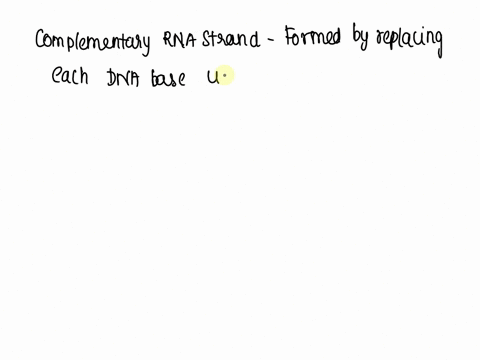 Complementary RNA Strand - Formed by replacing
each DNA base